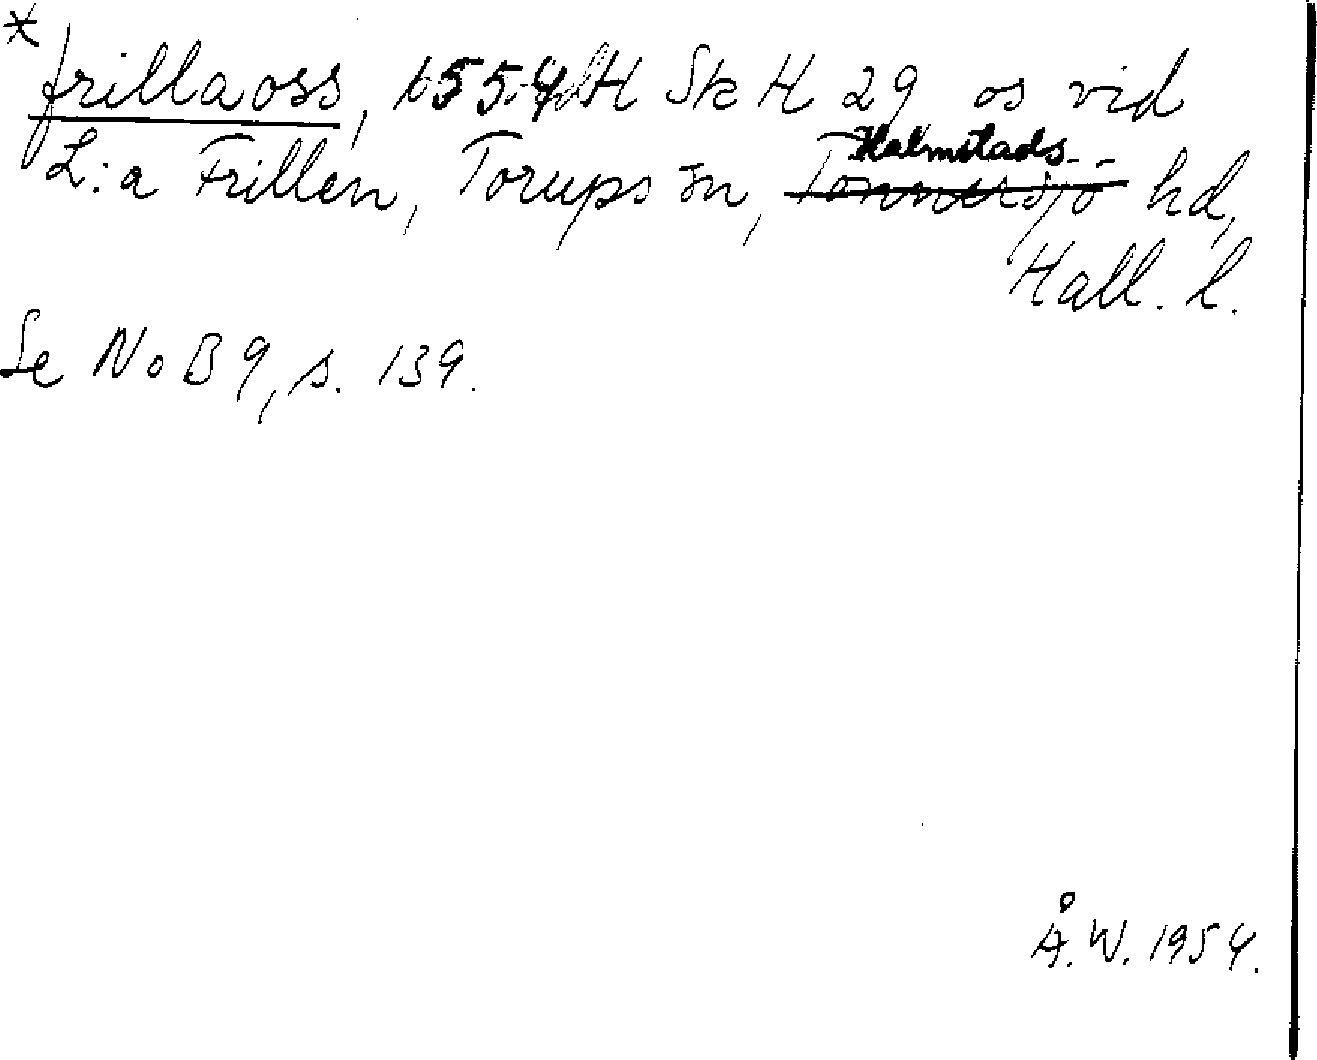 *
frillaoss, 1554 H Sk H 29 os vid
L:a Frillen, Torups sn, Halmstads hd,
Hall. l.
Se NoB 9, s. 139.
Å.W. 1954.